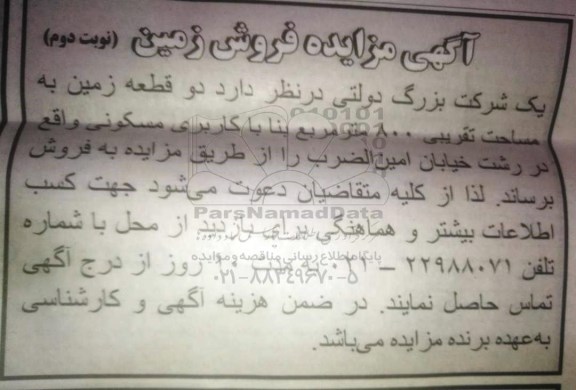 آگهی مزایده فروش زمین (نوبت دوم)
یک شرکت بزرگ دولتی درنظر دارد دو قطعه زمین به
مساحت تقریبی ۸۰۰ مترمربع بنا با کاربری مسکونی واقع
در رشت خیابان امین‌الضرب را از طریق مزایده به فروش
برساند. لذا از کلیه متقاضیان دعوت می‌شود جهت کسب
ParsNamadData
اطلاعات بیشتر و هماهنگی برای بازدید از محل با شماره
پایگاه اطلاع رسانی مناقصه و مزایده
تلفن ۲۲۹۸۸۰۷۱ – روز از درج آگهی
۰۲۱-۸۸۳۴۹۶۷۰-۵
تماس حاصل نمایند. در ضمن هزینه آگهی و کارشناسی
به‌عهده برنده مزایده می‌باشد.